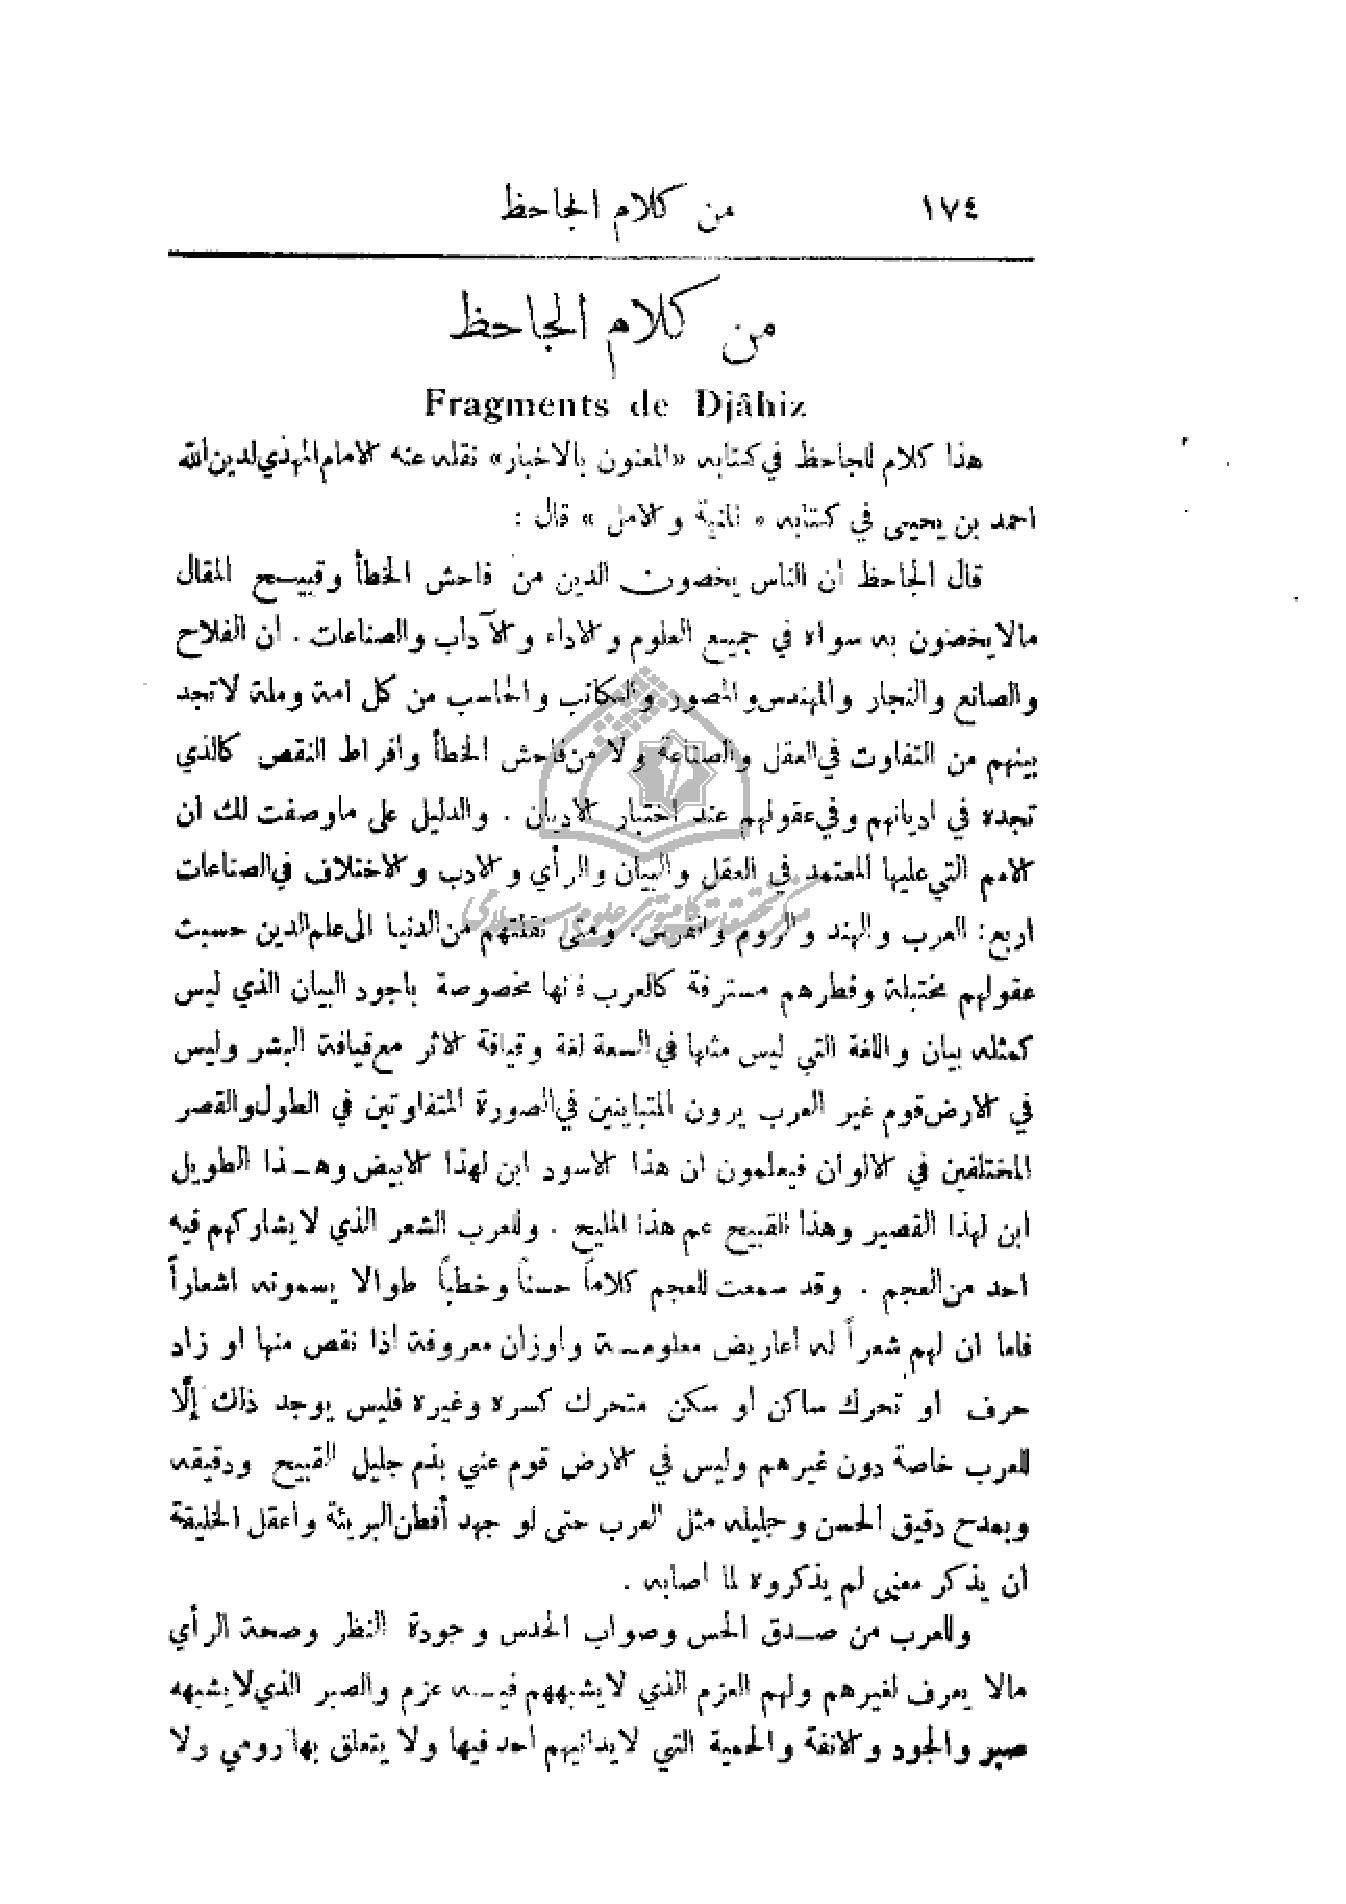 ١٧٤ من كلام الجاحظ
من كلام الجاحظ
Fragments de Djâhiz
هذا كلام للجاحظ في كتابه «المعنون بالاخبار» نقله عنه الامام المهذي لدين الله
احمد بن يحيى في كتابه « المنية والامل » قال :
قال الجاحظ ان الناس يخصون الدين من فاحش الخطأ وقبيح المقال
مالا يخصون به سواه في جميع العلوم والاداء والآداب والصناعات . ان الفلاح
والصانع والنجار والمهندس والمصور والكاتب والحاسب من كل امة وملة لا تجد
بينهم من التفاوت في العقل والصناعة ولا من فاحش الخطأ وافراط النقص كالذي
تجده في اديانهم وفي عقولهم عند اختبار الاديان . والدليل على ما وصفت لك ان
الامم التي عليها المعتمد في العقل والبيان والرأي والادب والاختلاف في الصناعات
اربع: العرب والهند والروم والفرس. ومتى نقلتهم من الدنيا الى علم الدين حسبت
عقولهم مختبلة وفطرهم مسترقة كالعرب فانها مخصوصة باجود البيان الذي ليس
كمثله بيان واللغة التي ليس مثلها في السعة لغة وقيافة الاثر مع قيافة البشر وليس
في الارض قوم غير العرب يرون المتباينين في الصورة المتفاوتين في الطول والقصر
المختلفين في الالوان فيعلمون ان هذا الاسود ابن لهذا الابيض وهذا الطويل
ابن لهذا القصير وهذا القبيح عم هذا المليح . وللعرب الشعر الذي لا يشاركهم فيه
احد من العجم . وقد سمعت للعجم كلاماً حسناً وخطباً طوالا يسمونه اشعاراً
فاما ان لهم شعراً له اعاريض معلومة واوزان معروفة اذا نقص منها او زاد
حرف او تحرك ساكن او سكن متحرك كسره وغيره فليس يوجد ذلك إلّا
للعرب خاصة دون غيرهم وليس في الارض قوم عني بذم جليل القبيح ودقيقه
وبمدح دقيق الحسن وجليله مثل العرب حتى لو جهد أفطن البريئة واعقل الخليقة
ان يذكر معنى لم يذكروه لما اصابه .
وللعرب من صدق الحس وصواب الحدس وجودة النظر وصحة الرأي
مالا يعرف لغيرهم ولهم العزم الذي لا يشبههم فيه عزم والصبر الذي لا يشبهه
صبر والجود والانفة والحمية التي لا يدانيهم احد فيها ولا يتعلق بها رومي ولا